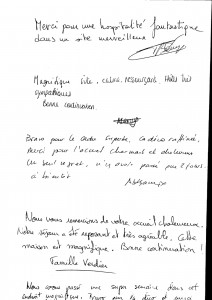 Merci pour une hospitalité fantastique
dans un site merveilleux
Magnifique site, cadre, très
sympathiques
Bonne continuation.
Bravo pour le cadre superbe, la déco raffinée,
Merci pour l'accueil charmant et chaleureux
Un seul regret, n'y avoir passé que 2 jours.
à bientôt
Nous vous remercions de votre accueil chaleureux.
Notre séjour a été reposant et très agréable. Cette
maison est magnifique. Bonne continuation !
Famille Verdier
Nous avons passé une super semaine dans cet
endroit magnifique. Merci pour la déco et aussi